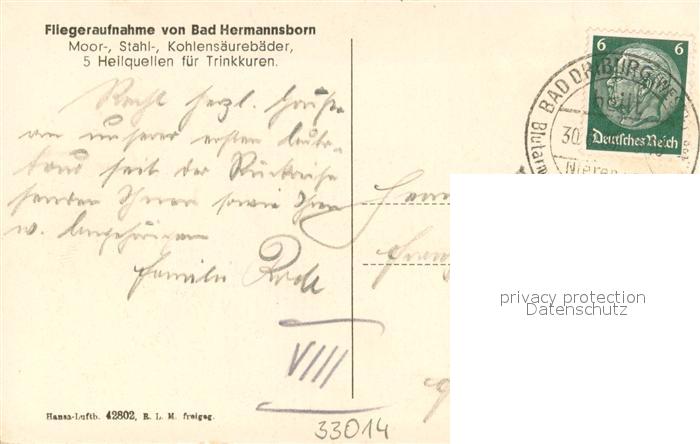 Fliegeraufnahme von Bad Hermannsborn
Moor-, Stahl-, Kohlensäurebäder,
5 Heilquellen für Trinkkuren.
Recht herzl. Grüße
von unserer ersten
seit der Rückreise
senden Ihnen sowie Ihren
w. Angehörigen
Familie
VIII
Hansa-Luftb. 42802, R. L. M. freigeg.
33014
6 6
Deutsches Reich
BAD DRIBURG
30.
Nieren
privacy protection
Datenschutz